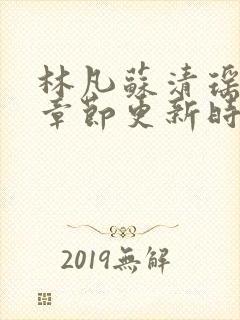 林凡蘇清瑤
章節更新時
2019無解